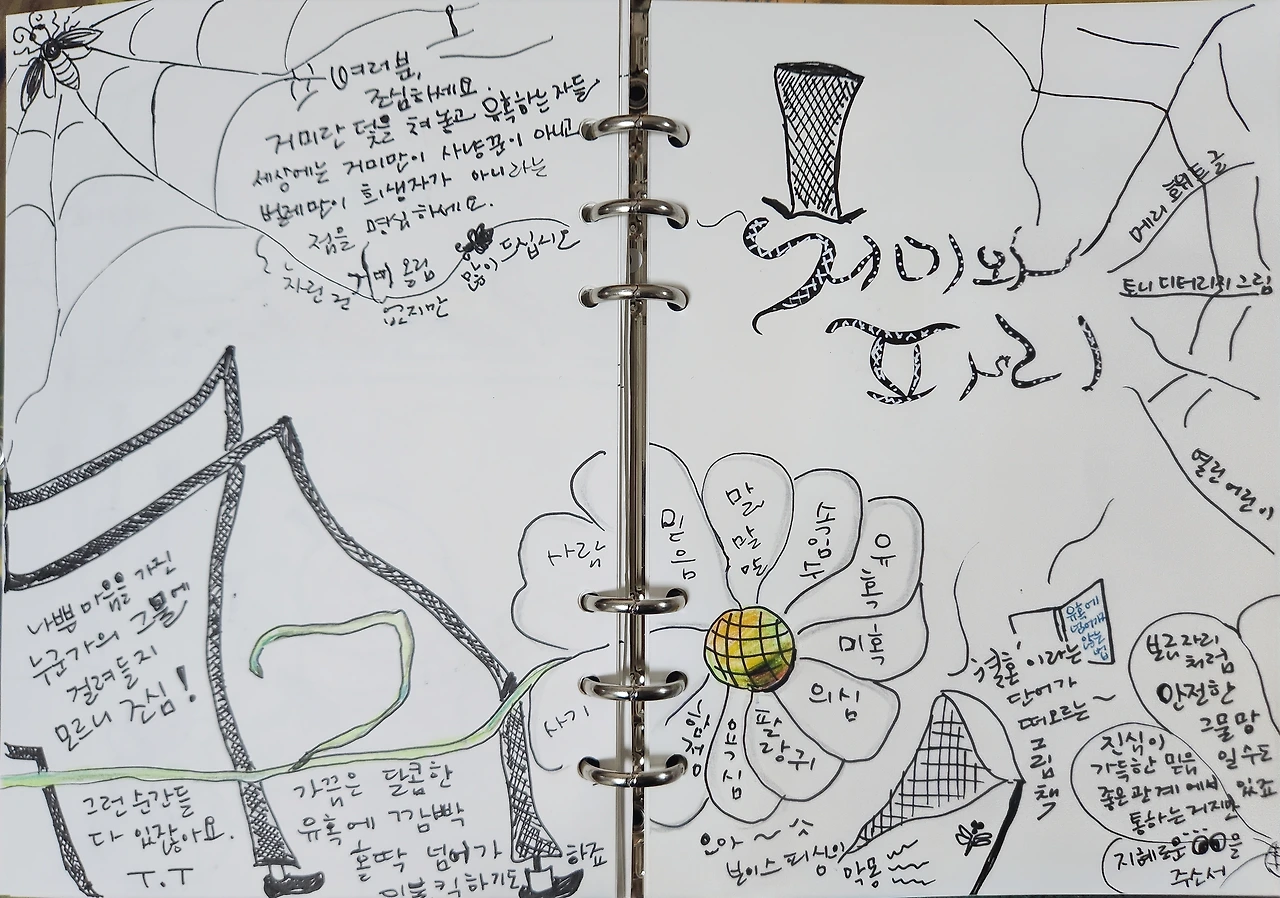 여러분,
조심하세요.
거미란 덫을 쳐 놓고 유혹하는 자들
세상에는 거미만이 사냥꾼이 아니고
벌레만이 희생자가 아니라는
점을 명심하세요.
차린 건 거미 올림
없지만 많이 드십시오
나쁜 마음을 가진
누군가의 그물에
걸려들지
모르니 조심!
그런 순간들
다 있잖아요.
T.T
가끔은 달콤한
유혹에 깜빡
홀딱 넘어가
이불킥하기도 하죠
거미와
파리
메리 호위트 글
토니 디터리치 그림
열린어린이
사람
믿음
말말말
속임수
유혹
미혹
의심
팔랑귀
욕심
함정
사기
으아~
보이스피싱의
악몽
유혹에
넘어가지
않는
법
'현혹'이라는
단어가
떠오르는~
그림책
보금자리
처럼
안전한
그물망
일 수도
있죠
진심이
가득한 믿음
좋은 관계에서
통하는 거지만
지혜로운 눈을
주소서